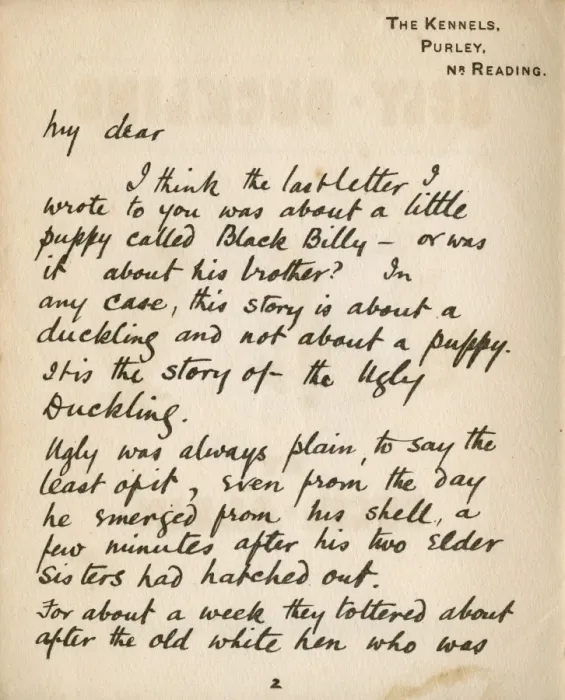 THE KENNELS,
PURLEY,
NR READING.
My dear
I think the last letter I
wrote to you was about a little
puppy called Black Billy – or was
it about his brother? In
any case, this story is about a
duckling and not about a puppy.
It is the story of the Ugly
Duckling.
Ugly was always plain, to say the
least of it, even from the day
he emerged from his shell, a
few minutes after his two Elder
Sisters had hatched out.
For about a week they tottered about
after the old white hen who was
2